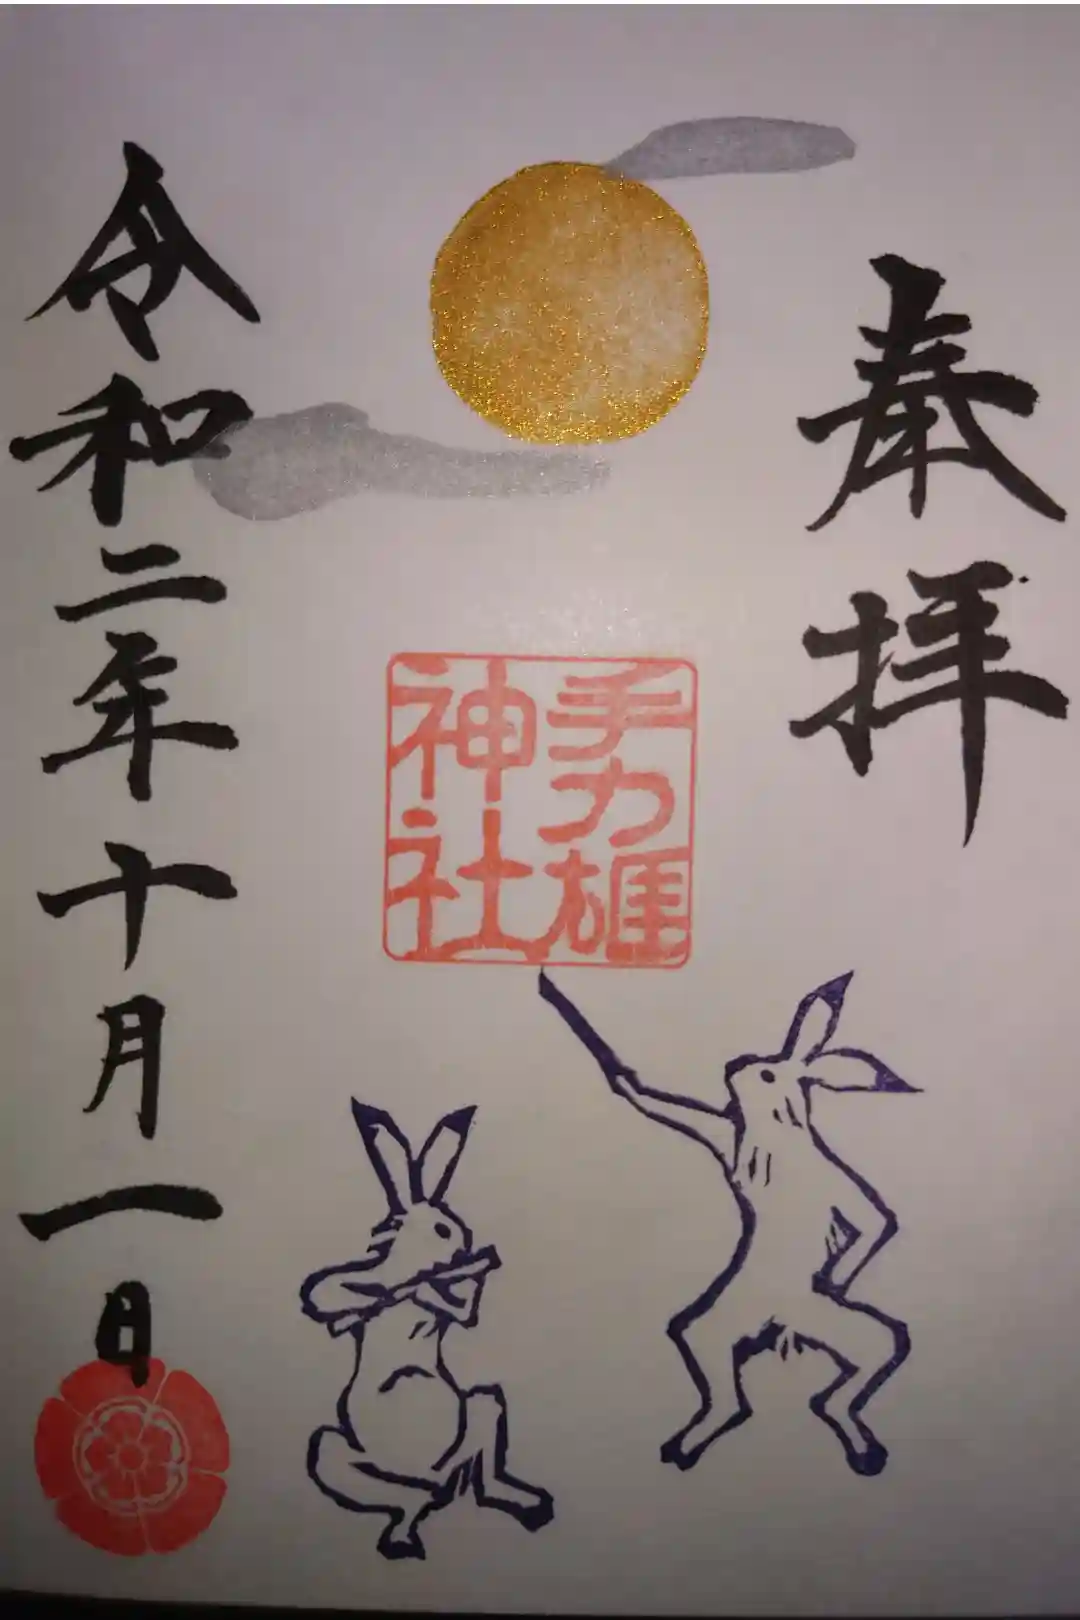 奉拝
手力雄
神社
令和二年十月一日